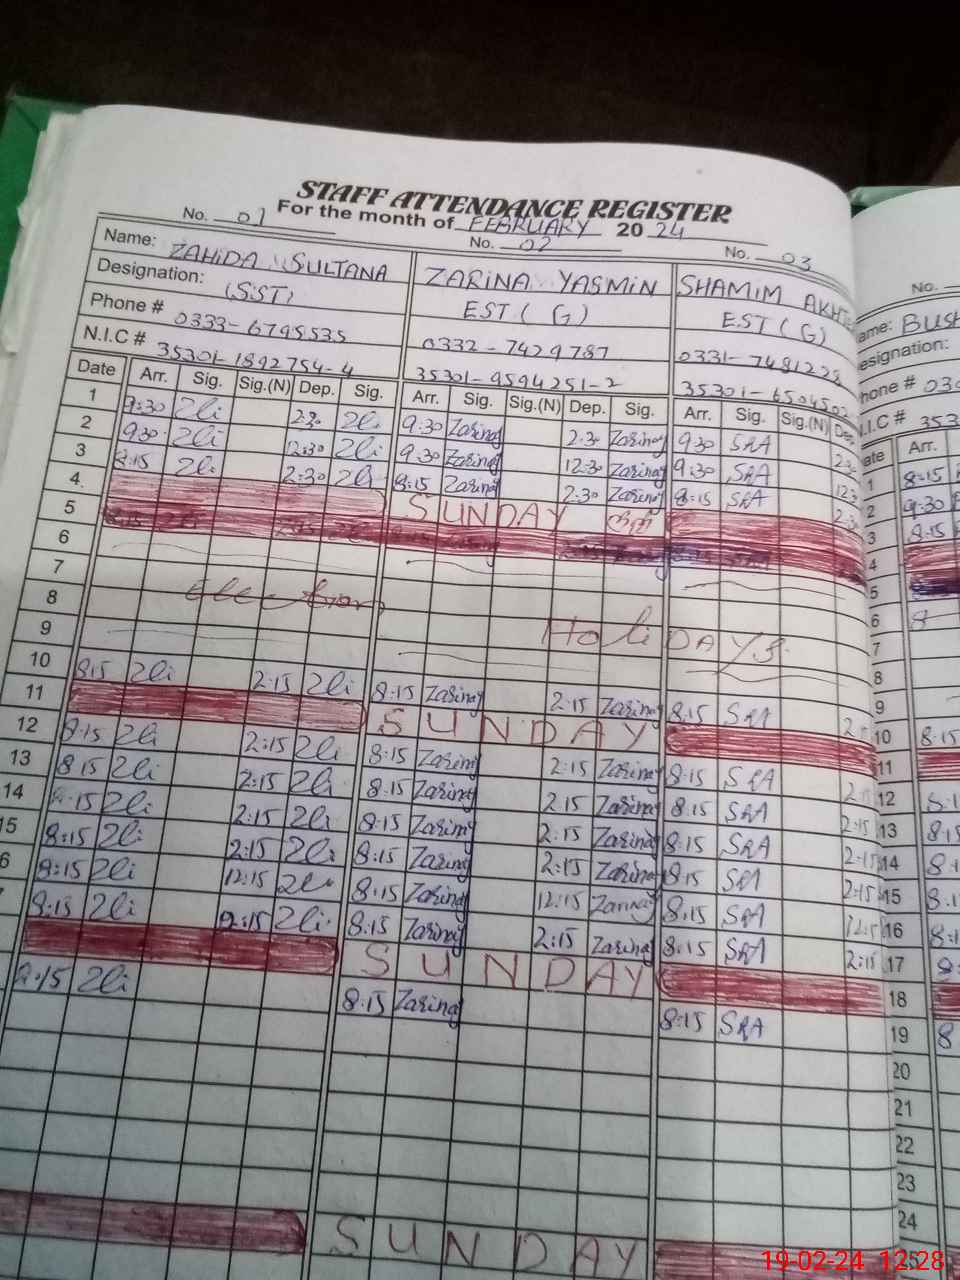 STAFF ATTENDANCE REGISTER
For the month of FEBRUARY 2024
No. 01 No. 02 No. 03 No.
Name: ZAHIDA SULTANA ZARINA YASMIN SHAMIM AKHT ame: BUSH
Designation: (SST) EST (G) EST (G) esignation:
Phone # 0333-6795535 0332-7429787 0331-7481228 hone # 030
N.I.C # 35301-1892754-4 35301-9594251-2 35301-6504502 .I.C # 353
Date Arr. Sig. Sig.(N) Dep. Sig. Arr. Sig. Sig.(N) Dep. Sig. Arr. Sig. Sig.(N) Dep. ate Arr.
1 9:30 Zli 2:30 Zli 9:30 Zarina 2:30 Zarina 9:30 SRA 2:3 1 8:15
2 9:30 Zli 12:30 Zli 9:30 Zarina 12:30 Zarina 9:30 SRA 12:3 2 9:30
3 8:15 Zli 2:30 Zli 8:15 Zarina 2:30 Zarina 8:15 SRA 2:3 3 8:15
4 SUNDAY 4
5 5
6 6 8
7 7
8 Election HOLIDAYS 8
9 9
10 8:15 Zli 2:15 Zli 8:15 Zarina 2:15 Zarina 8:15 SRA 2 10 8:15
11 SUNDAY 11
12 8:15 Zli 2:15 Zli 8:15 Zarina 2:15 Zarina 8:15 SRA 2 12 8:1
13 8:15 Zli 2:15 Zli 8:15 Zarina 2:15 Zarina 8:15 SRA 2:15 13 8:15
14 8:15 Zli 2:15 Zli 8:15 Zarina 2:15 Zarina 8:15 SRA 2:15 14 8:1
15 8:15 Zli 2:15 Zli 8:15 Zarina 2:15 Zarina 8:15 SRA 2:15 15 8:1
6 8:15 Zli 12:15 Zli 8:15 Zarina 12:15 Zarina 8:15 SRA 12:15 16 8:1
8:15 Zli 2:15 Zli 8:15 Zarina 2:15 Zarina 8:15 SRA 2:15 17 8:
SUNDAY 18
8:15 Zli 8:15 Zarina 8:15 SRA 19 8
20
21
22
23
24
SUNDAY 25
19-02-24 12:28